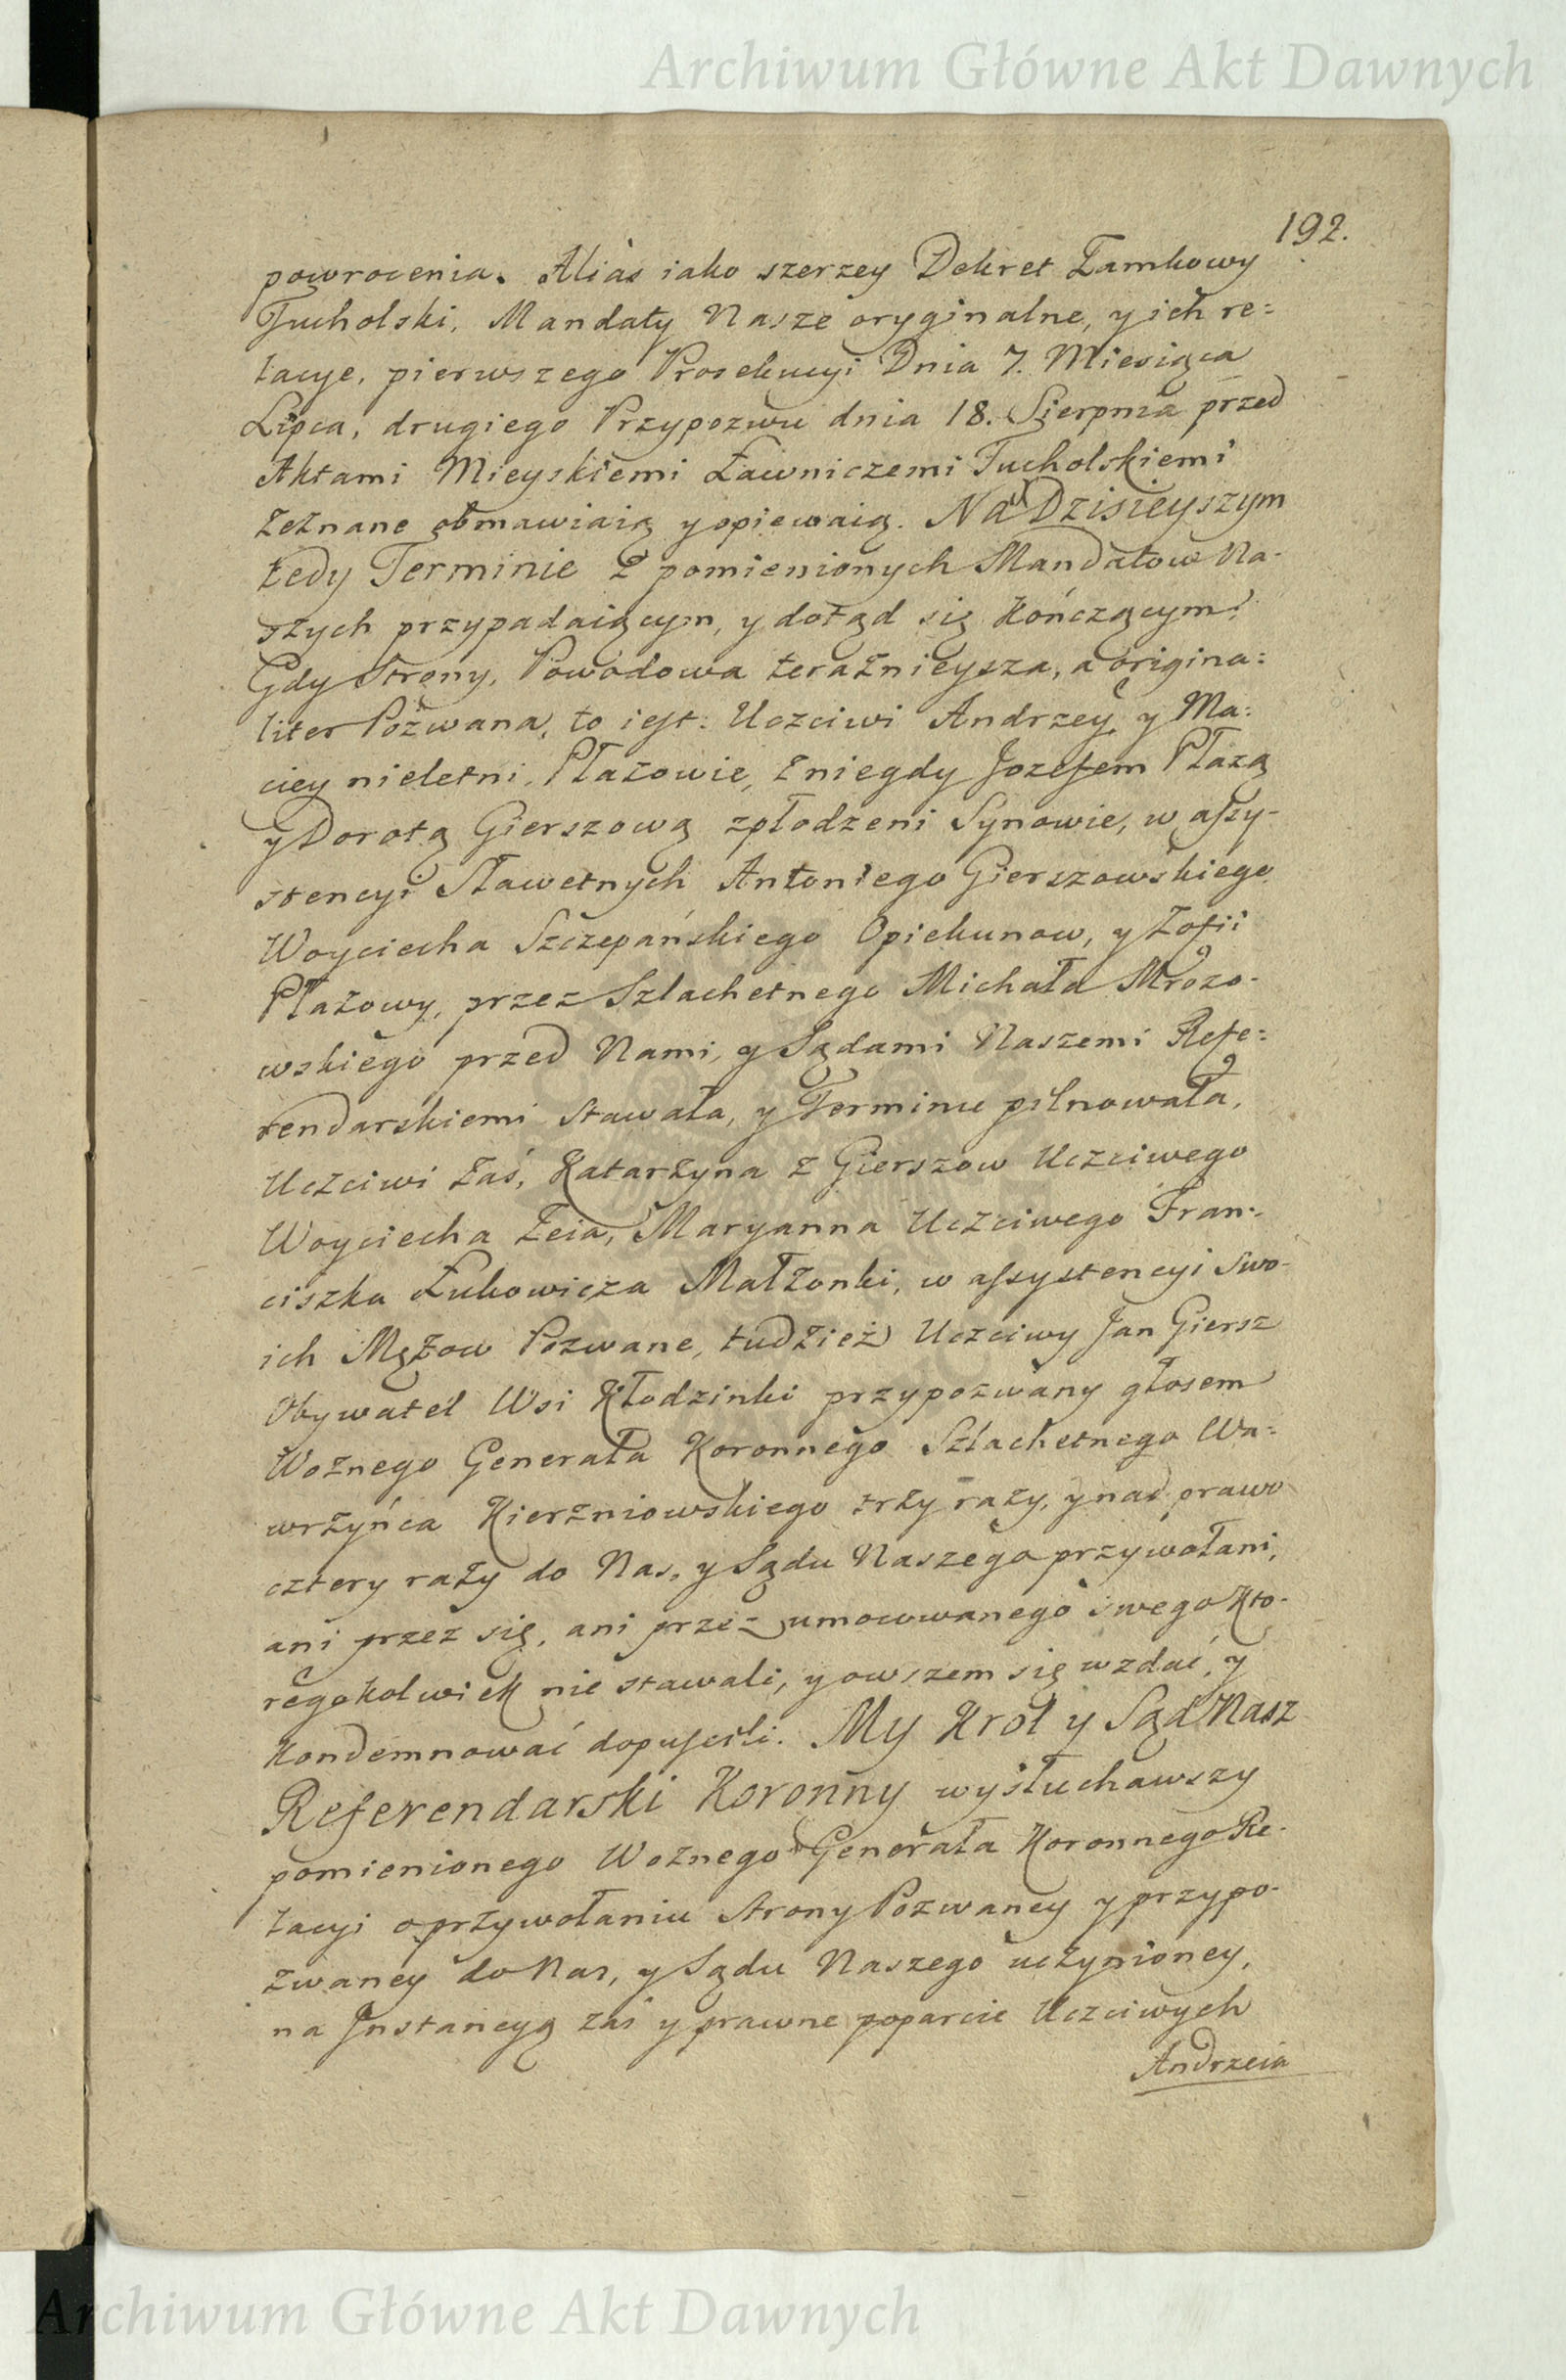 Archiwum Główne Akt Dawnych
192.
powrocenia. Aliàs iako szerzey Dekret Zamkowy
Tucholski, Mandaty Nasze oryginalne, y ich re=
lacye, pierwszego Prosekucyi Dnia 7. Miesiąca
Lipca, drugiego Przypozwu dnia 18. Sierpnia przed
Aktami Mieyskiemi Ławniczemi Tucholskiemi
zeznane obmawiaią y opiewaią. Na Dzisieyszym
tedy Terminie z pomienionych Mandatow Na-
szych przypadaiącym, y dotąd się kończącym.
Gdy Strony, Powodowa teraznieysza, a origina=
liter Pozwana, to iest: Uczciwi Andrzey, y Ma=
ciey nieletni, Płazowie, z niegdy Jozefem Płazą
y Dorotą Gierszową spłodzeni Synowie, w assy-
stencyi Sławetnych Antoniego Gierszowskiego
Woyciecha Szczepańskiego Opiekunow, y Zofii
Płazowy, przez Szlachetnego Michała Mrozo-
wskiego przed Nami, y Sądami Naszemi Refe=
rendarskiemi stawała, y Terminu pilnowała,
Uczciwi zaś, Katarzyna z Gierszow Uczciwego
Woyciecha Zeia, Maryanna Uczciwego Fran-
ciszka Łukowicza Małżonki, w assystencyi Swo-
ich Mężow Pozwane, tudzież Uczciwy Jan Giersz
Obywatel Wsi Kłodzinki przypozwany głosem
Woznego Generała Koronnego Szlachetnego Wa=
wrzyńca Kierzniowskiego trzy razy, y nad prawo
cztery razy do Nas, y Sądu Naszego przywołani,
ani przez się, ani przez umocowanego swego kto-
regokolwiek nie stawali, y owszem się wzdać, y
kondemnować dopuścili. My Krol y Sąd Nasz
Referendarski Koronny wysłuchawszy
pomienionego Woznego Generała Koronnego Re-
lacyi o przywołaniu Strony Pozwaney y przypo-
zwaney do Nas, y Sądu Naszego uczynioney,
na Jnstancyą zaś y prawne poparcie Uczciwych
Andrzeia
Archiwum Główne Akt Dawnych